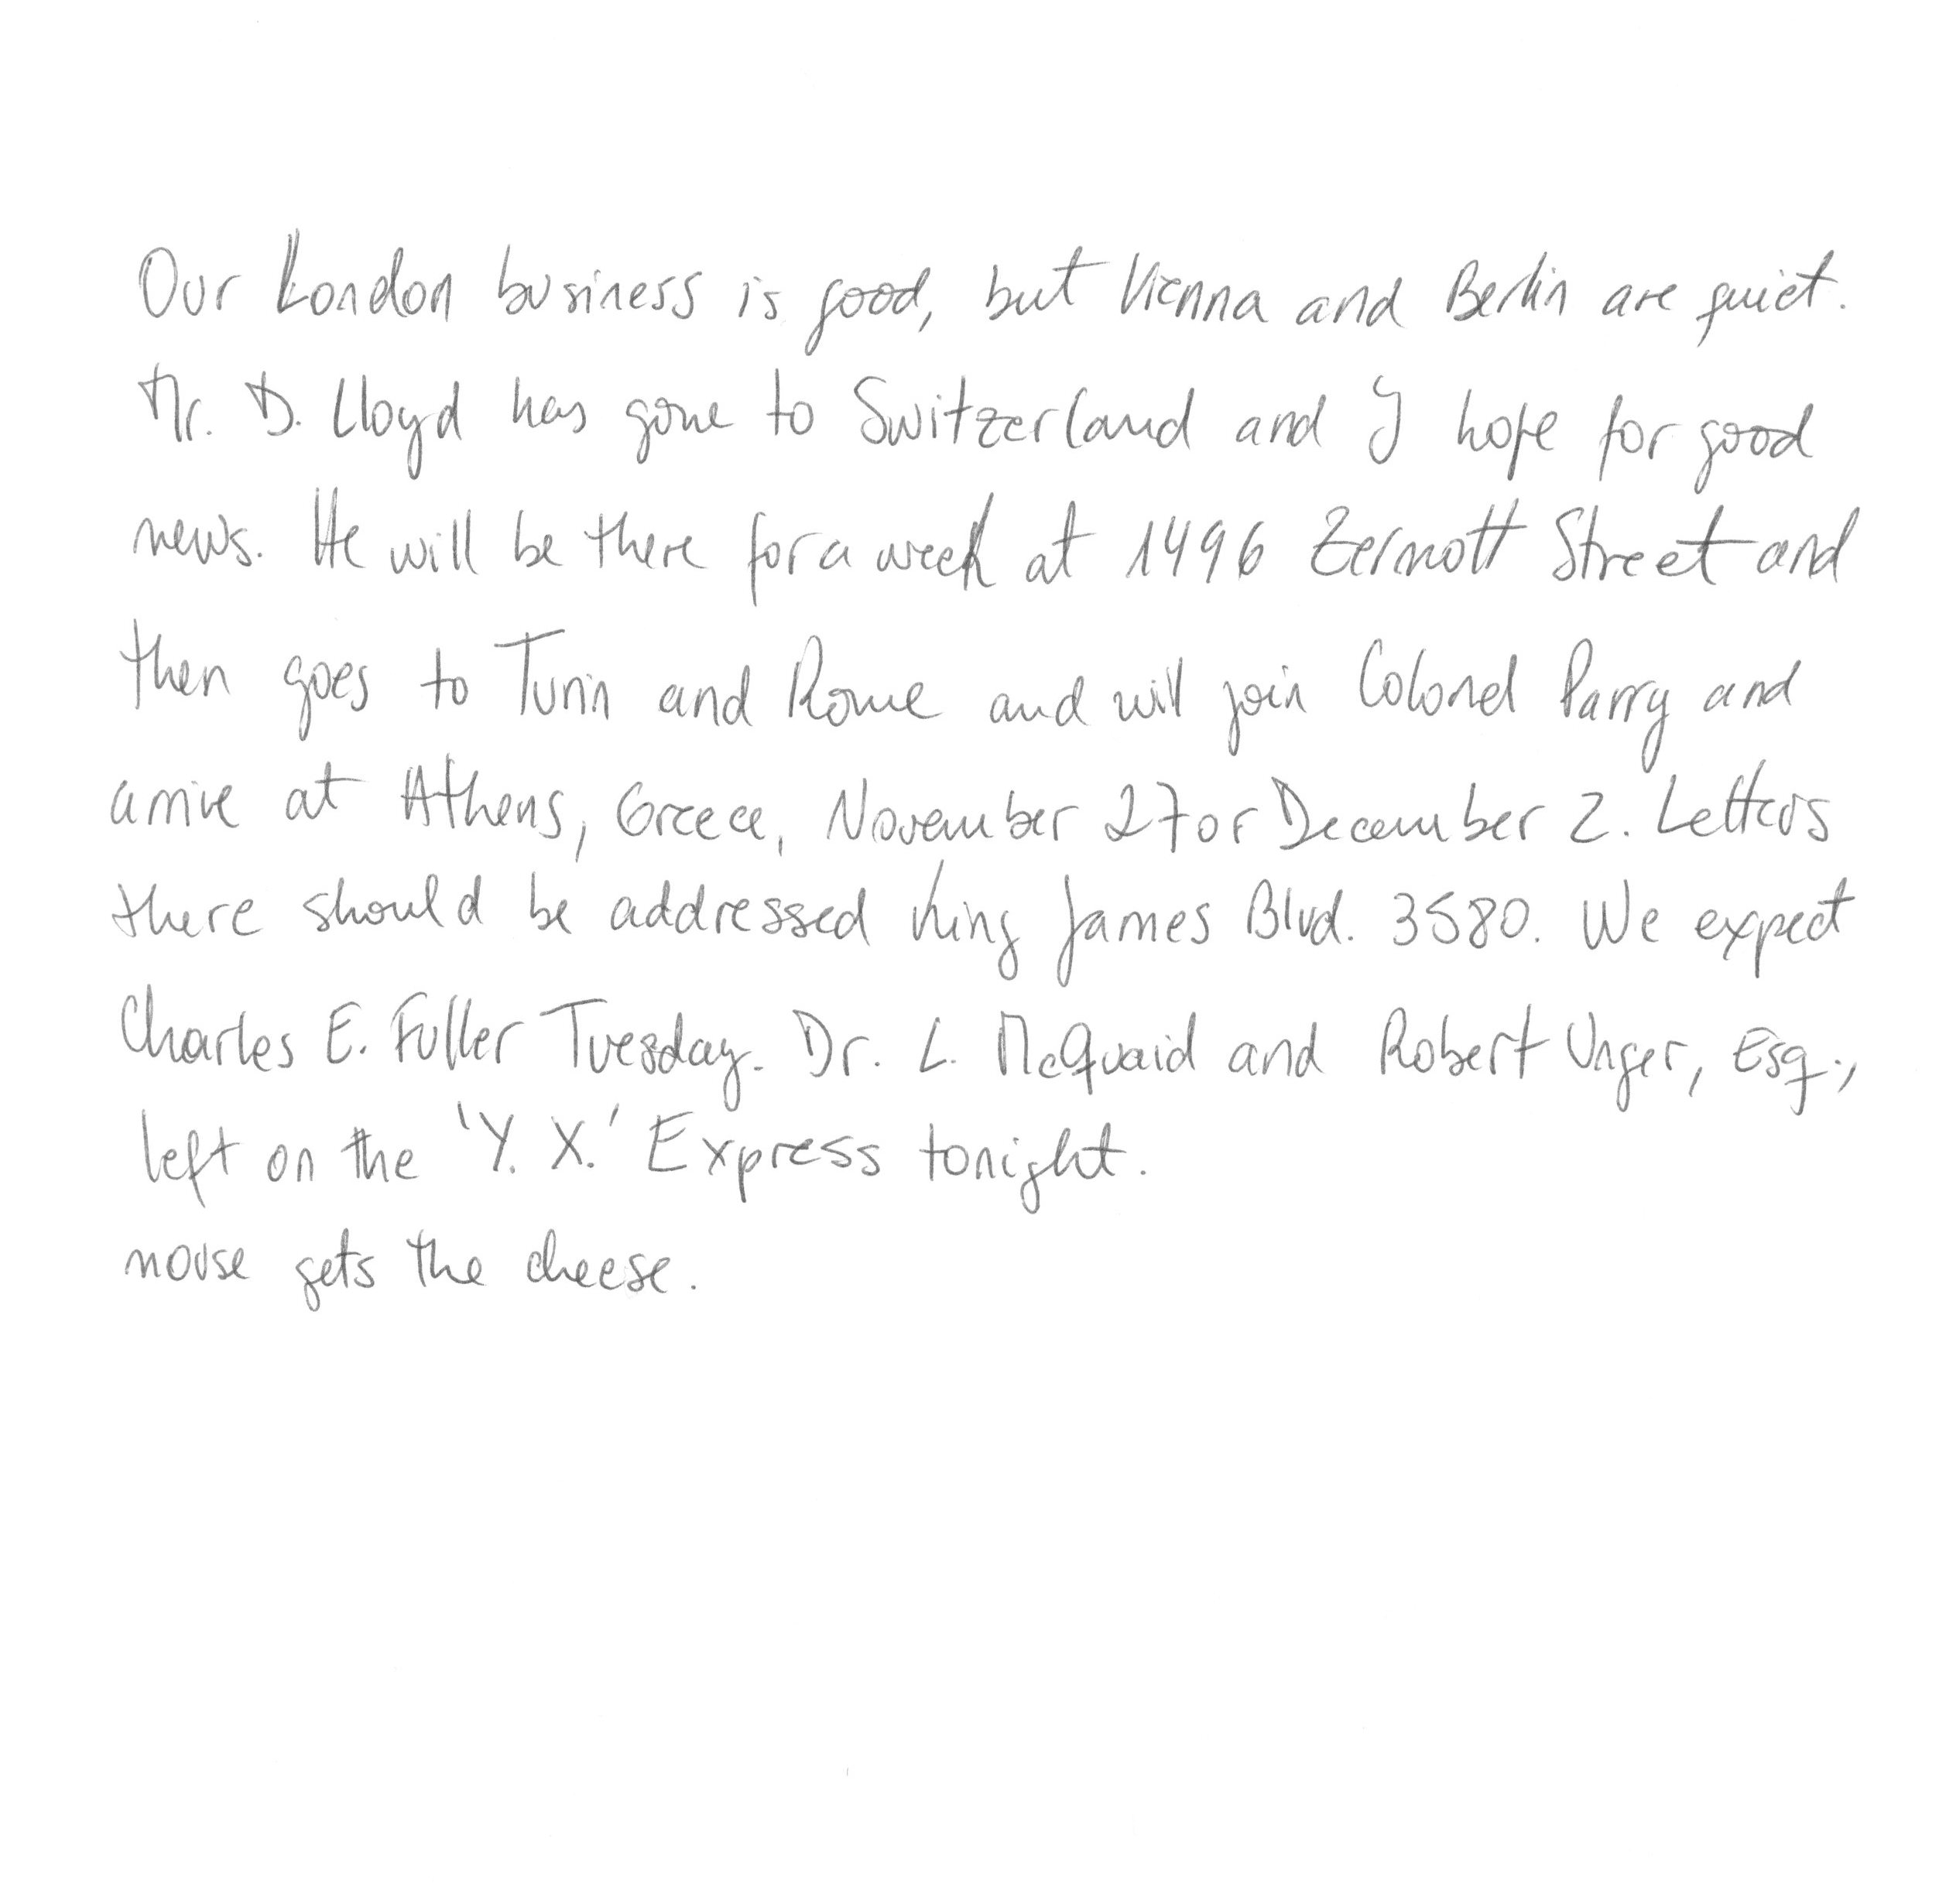 Our London business is good, but Vienna and Berlin are quiet.
Mr. D. Lloyd has gone to Switzerland and I hope for good
news. He will be there for a week at 1496 Zermott Street and
then goes to Turin and Rome and will join Colonel Parry and
arrive at Athens, Greece, November 27 or December 2. Letters
there should be addressed King James Blvd. 3580. We expect
Charles E. Fuller Tuesday. Dr. L. McQuaid and Robert Unger, Esq.,
left on the 'Y. X.' Express tonight.
mouse gets the cheese.